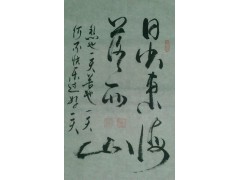 日出東海
落西山
愁也一天喜也一天
何不快乐过好一天